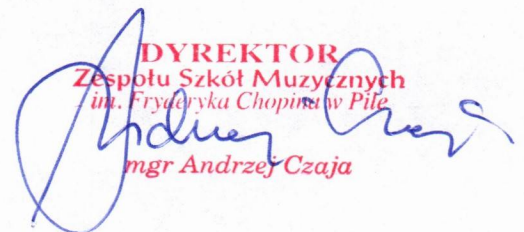 DYREKTOR
Zespołu Szkół Muzycznych
im. Fryderyka Chopina w Pile
Andrzej Czaja
mgr Andrzej Czaja